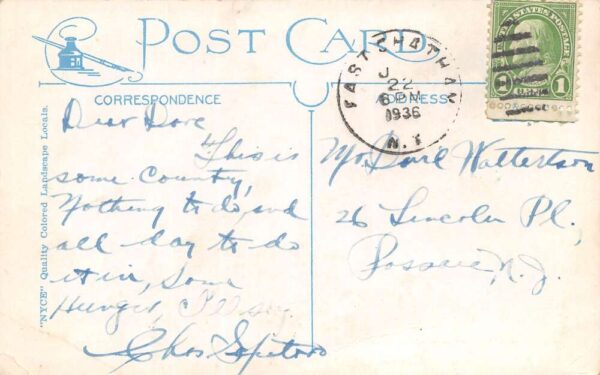 POST CARD
CORRESPONDENCE
ADDRESS
EAST CHATHAM
J
22
6 PM
1936
N.Y.
U.S. POSTAGE
1 1
"NYCE" Quality Colored Landscape Locals.
Dear Dave
This is
some County,
Nothing to do and
all day to do
it in, Some
Hunger, I'll say
Chas
Mr. David Watterson
26 Lincoln Pl,
Passaic, N.J.